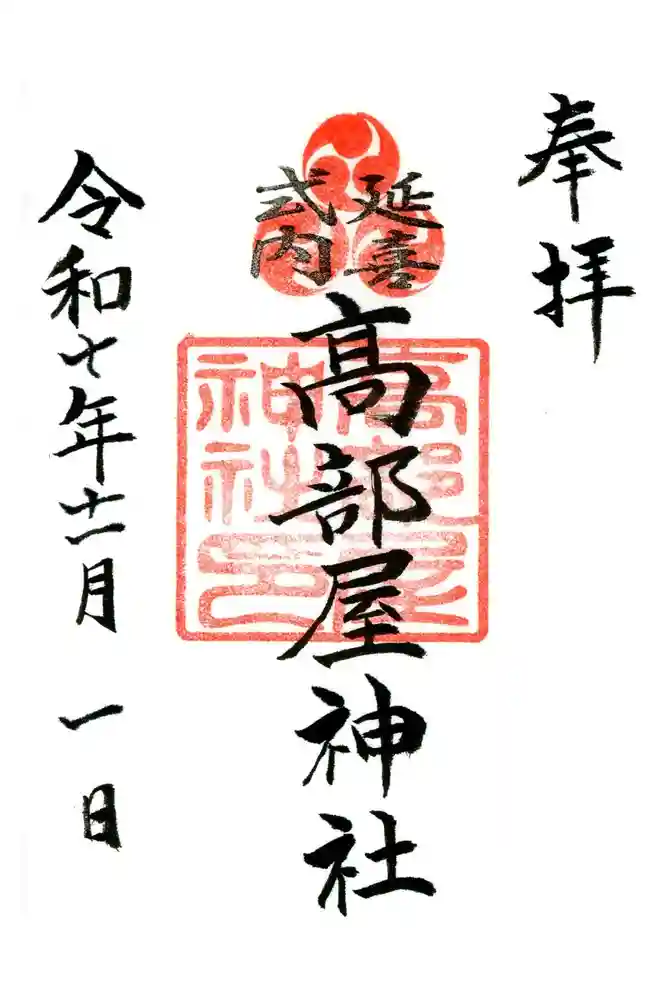 奉拝
延喜
式内
髙部屋神社
髙部屋
神社印
令和七年十一月 一日